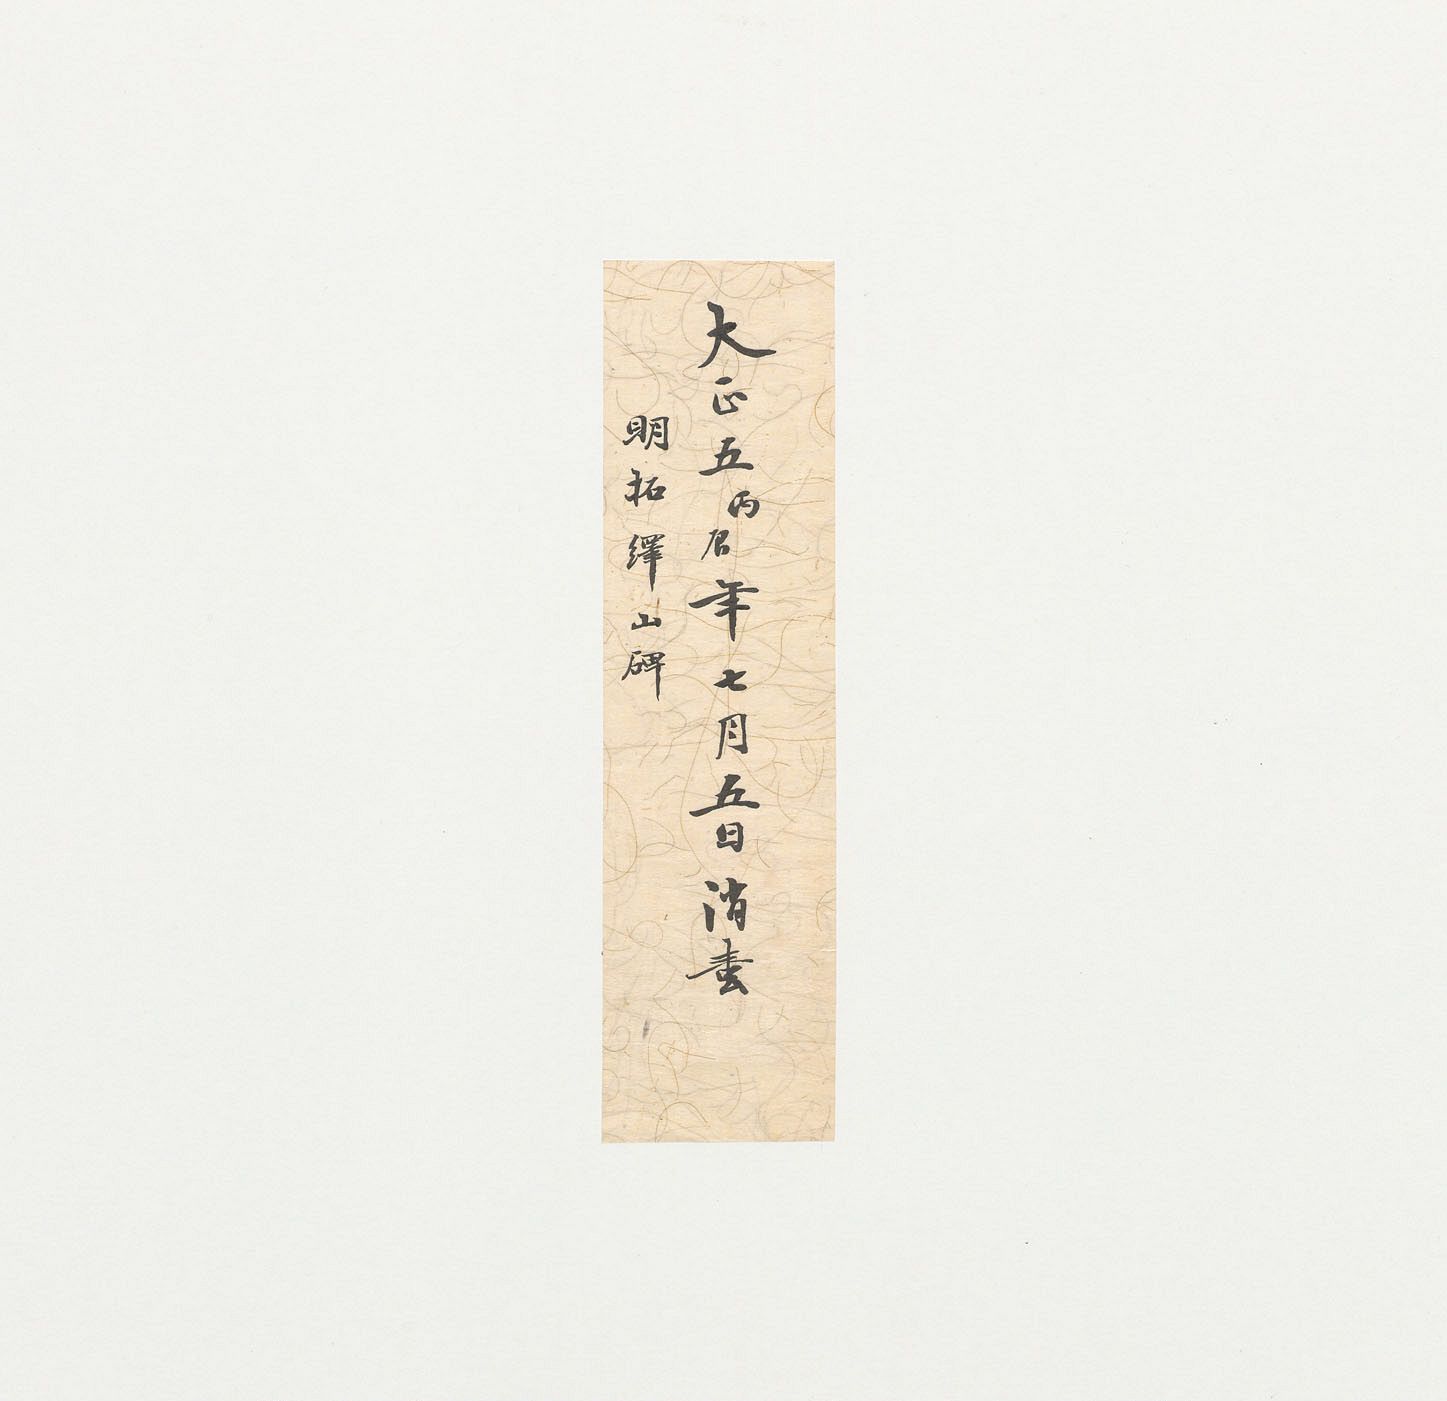 大正五丙辰年七月五日消
明拓繹山碑